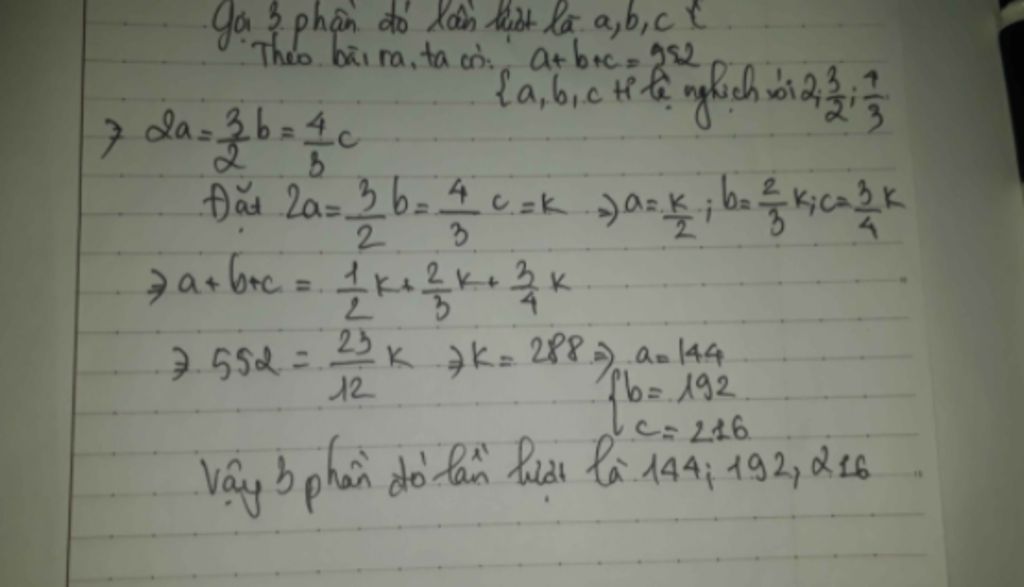 Gọi 3 phần đó lần lượt là a, b, c {
Theo bài ra, ta có: a+b+c = 552
{a, b, c tỉ lệ nghịch với 2; 3/2; 4/3
⇒ 2a = 3/2 b = 4/3 c
Đặt 2a = 3/2 b = 4/3 c = k ⇒ a = k/2 ; b = 2/3 k; c = 3/4 k
⇒ a+b+c = 1/2 k + 2/3 k + 3/4 k
⇒ 552 = 23/12 k ⇒ k = 288 ⇒ a = 144
{ b = 192
c = 216
Vậy 3 phần đó lần lượt là 144; 192; 216